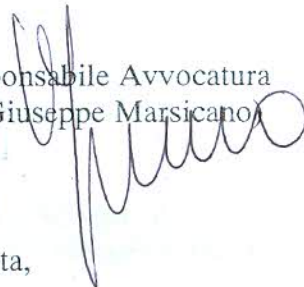 ponsabile Avvocatura
Giuseppe Marsicano)
ta,